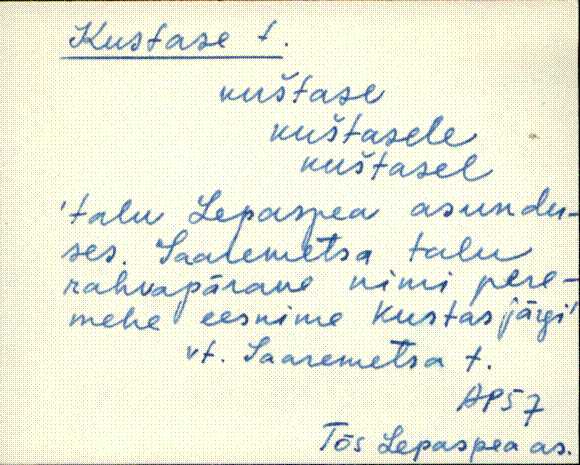 Kustase t.
kuštase
kuštasele
kuštasel
'talu Lepaspea asundu-
ses. Saaremetsa talu
rahvapärane nimi pere-
mehe eesnime Kustas järgi'
vt. Saaremetsa t.
AP57
Tõs Lepaspea as.